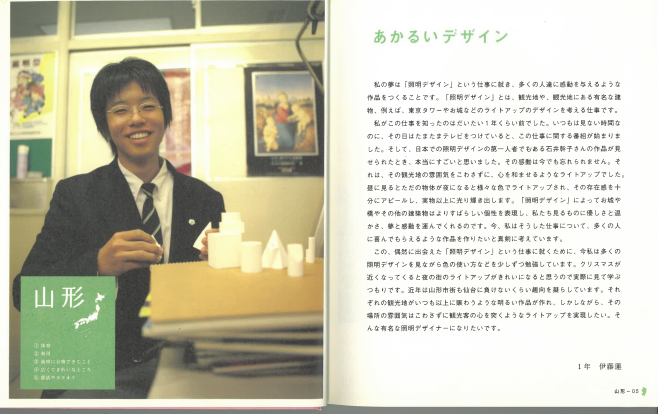 山形
あかるいデザイン
私の夢は「照明デザイン」という仕事に就き、多くの人達に感動を与えるような
作品をつくることです。「照明デザイン」とは、観光地や、観光地にある有名な建
物、例えば、東京タワーやお城などのライトアップのデザインを考える仕事です。
私がこの仕事を知ったのはだいたい1年くらい前でした。いつもは見ない時間な
のに、その日はたまたまテレビをつけていると、この仕事に関する番組が始まりま
した。そして、日本での照明デザインの第一人者でもある石井幹子さんの作品が見
せられたとき、本当にすごいと思いました。その感動は今でも忘れられません。そ
れは、その観光地の雰囲気をこわさずに、心を和ませるようなライトアップでした。
昼に見るとただの物体が夜になると様々な色でライトアップされ、その存在感を十
分にアピールし、実物以上に光り輝き出します。「照明デザイン」によってお城や
橋やその他の建築物はよりすばらしい個性を表現し、私たち見るものに優しさと温
かさ、夢と感動を運んでくれるのです。今、私はそうした仕事について、多くの人
に喜んでもらえるような作品を作りたいと真剣に考えています。
この、偶然に出会えた「照明デザイン」という仕事に就くために、今私は多くの
照明デザインを見ながら色の使い方などを少しずつ勉強しています。クリスマスが
近くなってくると夜の街のライトアップがきれいになると思うので実際に見て学ぶ
つもりです。近年は山形市街も仙台に負けないくらい趣向を凝らしています。それ
ぞれの観光地がいつも以上に賑わうような明るい作品が作れ、しかしながら、その
場所の雰囲気はこわさずに観光客の心を突くようなライトアップを実現したい。そ
んな有名な照明デザイナーになりたいです。
1年 伊藤蓮
山形－05